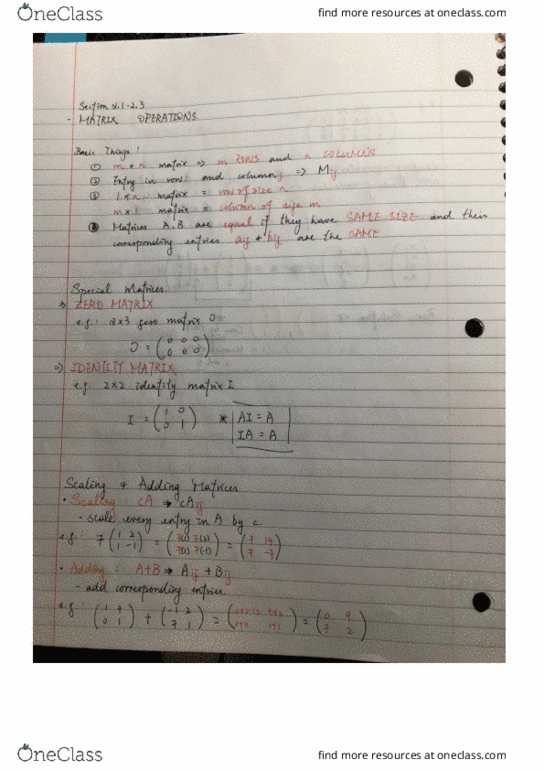 OneClass
find more resources at oneclass.com
Section 2.1-2.3
- MATRIX OPERATIONS
Basic Things:
① m × n matrix ⇒ m ROWS and n COLUMNS
② Entry in row i and column j ⇒ Mij
③ 1 × n matrix = row of size n
m × 1 matrix = column of size m
④ Matrices A, B are equal if they have SAME SIZE and their
corresponding entries aij & bij are the SAME
Special Matrices
⇒ ZERO MATRIX
e.g.: 2×3 zero matrix O
O = (0 0 0
0 0 0)
⇒ IDENTITY MATRIX
e.g. 2×2 identity matrix I
I = (1 0 * AI = A
0 1) IA = A
Scaling & Adding Matrices
• Scaling: cA → cAij
- scale every entry in A by c.
e.g.: 7 (1 2 = (7(1) 7(2) = (7 14
1 -1) 7(1) 7(-1)) 7 -7)
• Adding: A+B → Aij + Bij
- add corresponding entries
e.g.: (1 7 + (-1 2 = = (0 9
0 1) 7 1) 7 2)
OneClass
find more resources at oneclass.com